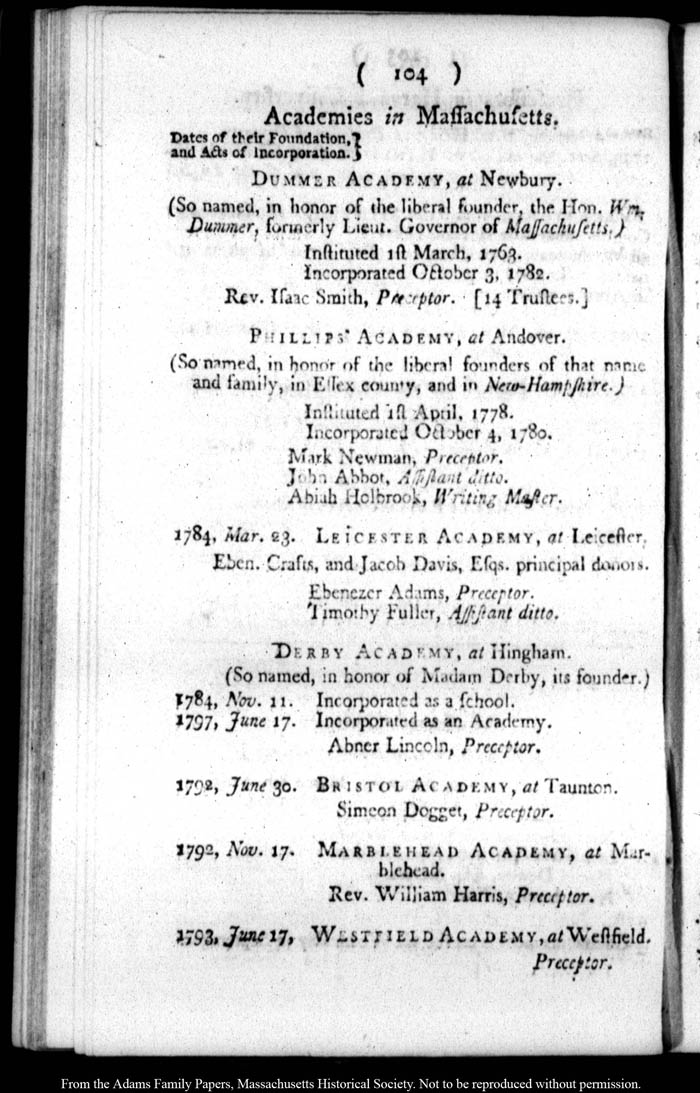 ( 104 )
Academies in Maſſachuſetts.
Dates of their Foundation, }
and Acts of Incorporation. }
DUMMER ACADEMY, at Newbury.
(So named, in honor of the liberal founder, the Hon. Wm.
Dummer, formerly Lieut. Governor of Maſſachuſetts.)
Inſtituted 1ſt March, 1763.
Incorporated October 3, 1782.
Rev. Iſaac Smith, Preceptor. [14 Truſtees.]
PHILLIPS' ACADEMY, at Andover.
(So named, in honor of the liberal founders of that name
and family, in Eſſex county, and in New-Hampſhire.)
Inſtituted 1ſt April, 1778.
Incorporated October 4, 1780.
Mark Newman, Preceptor.
John Abbot, Aſſiſtant ditto.
Abiah Holbrook, Writing Maſter.
1784, Mar. 23. LEICESTER ACADEMY, at Leiceſter.
Eben. Crafts, and Jacob Davis, Eſqs. principal donors.
Ebenezer Adams, Preceptor.
Timothy Fuller, Aſſiſtant ditto.
DERBY ACADEMY, at Hingham.
(So named, in honor of Madam Derby, its founder.)
1784, Nov. 11. Incorporated as a ſchool.
1797, June 17. Incorporated as an Academy.
Abner Lincoln, Preceptor.
1792, June 30. BRISTOL ACADEMY, at Taunton.
Simeon Dogget, Preceptor.
1792, Nov. 17. MARBLEHEAD ACADEMY, at Mar-
blehead.
Rev. William Harris, Preceptor.
1793, June 17, WESTFIELD ACADEMY, at Weſtfield.
Preceptor.
From the Adams Family Papers, Massachusetts Historical Society. Not to be reproduced without permission.